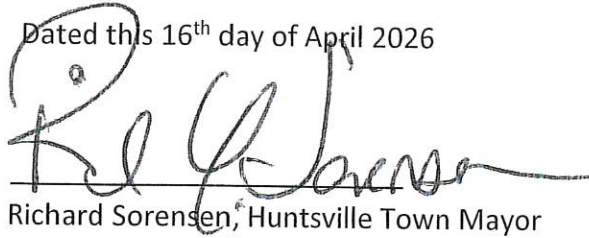 Dated this 16th day of April 2026
Richard Sorensen, Huntsville Town Mayor